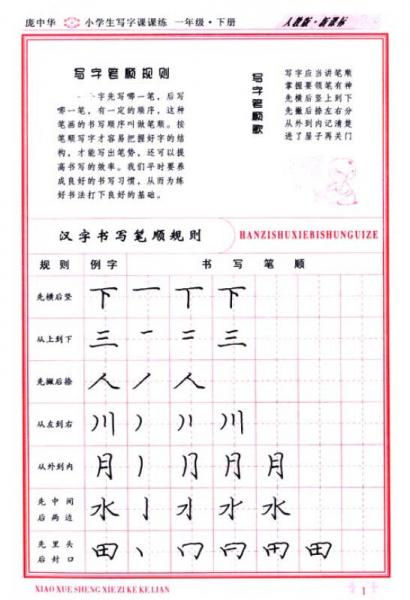 庞中华 小学生写字课课练 一年级·下册 人教版·新课标
写字笔顺规则
一个字先写哪一笔，后写
哪一笔，有一定的顺序，这种
笔画的书写顺序叫做笔顺。按
笔顺写字才容易把握好字的结
构，才能写出笔势，还可以提
高书写的效率。我们平时要养
成良好的书写习惯，从而为练
好书法打下良好的基础。
写字笔顺歌
写字应当讲笔顺
掌握要领笔有神
先横后竖上到下
先撇后捺左右分
从外到内记清楚
进了屋子再关门
汉字书写笔顺规则 HANZISHUXIEBISHUNGUIZE
规则 例字 书写笔顺
先横后竖 下 一 丅 下
从上到下 三 一 二 三
先撇后捺 人 丿 人
从左到右 川 丿 丿丨 川
从外到内 月 丿 ⺆ 月 月
先中间后两边 水 亅 水 水
先里头后封口 田 丨 冂 田 田
XIAO XUE SHENG XIE ZI KE KE LIAN 1